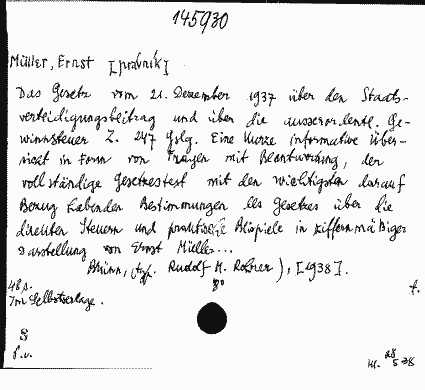 145930
Müller, Ernst [právník]
Das Gesetz vom 21. Dezember 1937 über den Staats-
verteidigungsbeitrag und über die ausserordentl. Ge-
winnsteuer Z. 247 Gslg. Eine kurze informative Über-
sicht in Form von Fragen mit Beantwortung, den
vollständige Gesetzestext mit den wichtigsten darauf
Bezug habenden Bestimmungen des Gesetzes über die
direkten Steuern und praktische Beispiele in ziffernmäsiger
Darstellung von Ernst Müller...
Brünn, typ. Rudolf M. Rohrer), [1938].
48 s. 8° t.
Im Selbstverlage.
8
28
5 38